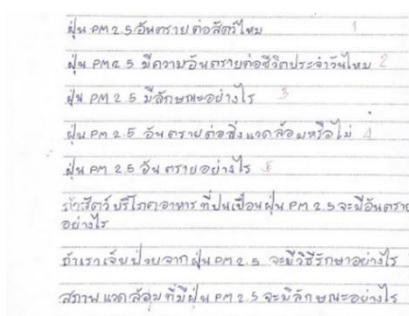 ฝุ่น PM 2.5 อันตรายต่อสัตว์ไหม 1
ฝุ่น PM 2.5 มีความอันตรายต่อชีวิตประจำวันไหม 2
ฝุ่น PM 2.5 มีลักษณะอย่างไร 3
ฝุ่น PM 2.5 อันตรายต่อสิ่งแวดล้อมหรือไม่ 4
ฝุ่น PM 2.5 อันตรายอย่างไร 5
ถ้าสัตว์บริโภคอาหารที่ปนเปื้อนฝุ่น PM 2.5 จะมีอันตราย
อย่างไร
ถ้าเราเจ็บป่วยจากฝุ่น PM 2.5 จะมีวิธีรักษาอย่างไร
สภาพแวดล้อมที่มีฝุ่น PM 2.5 จะมีลักษณะอย่างไร